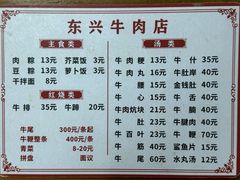 东兴牛肉店
主食类
肉粽 13元 芥菜饭 3元
豆粽 13元 萝卜饭 3元
干拌面 8元
红烧类
牛排 35元 牛蹄 20元
牛尾 300元/条起
牛鞭整条 400元/条
青菜 8-20元
拼盘 面议
汤类
牛肉粳 13元 牛什 35元
牛肉丸 16元 牛肚岸 40元
牛腰 40元 金钱肚 40元
牛心 40元 牛肚 35元
牛肉块 35元 牛肚 40元
牛百叶 23元 牛鞭 70元
牛筋 45元 鲨鱼片 15元
牛尾 60元 水丸汤 12元